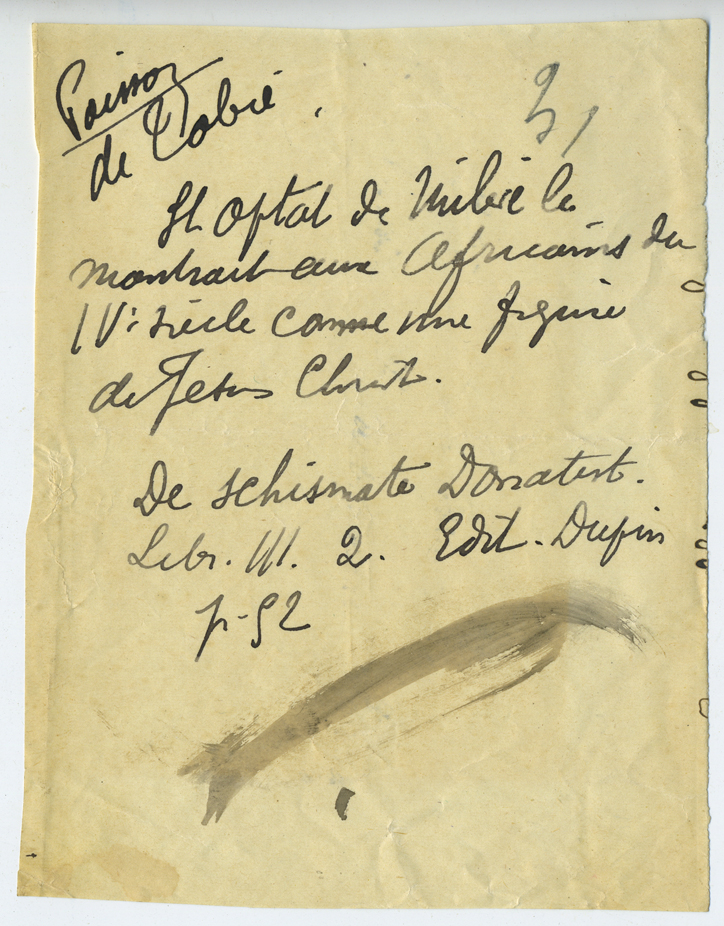 Poisson
de Tobie.
St Optat de Milève le
montrait aux Africains du
IVe siècle comme une figure
de Jésus Christ.
De schismate Donatist.
Libr. III. 2. Edit. Dupin
p. 52